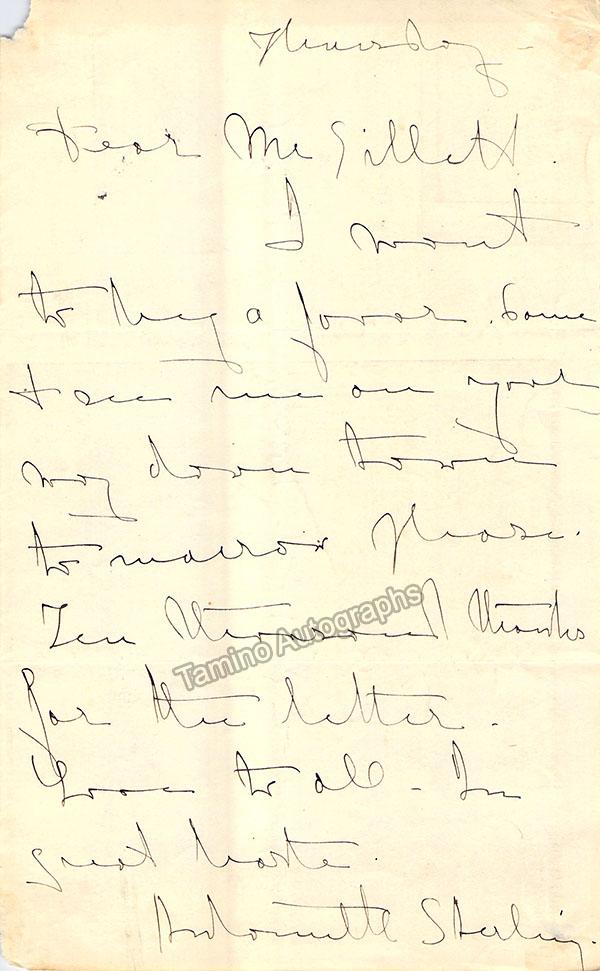 Thursday -
Dear Mr Gillett.
I want
to beg a favor. Come
& see me on your
way down town
to morrow please.
Ten thousand thanks
Tamino Autographs
for the letter.
Love to all - In
great haste.
Antoinette Sterling.